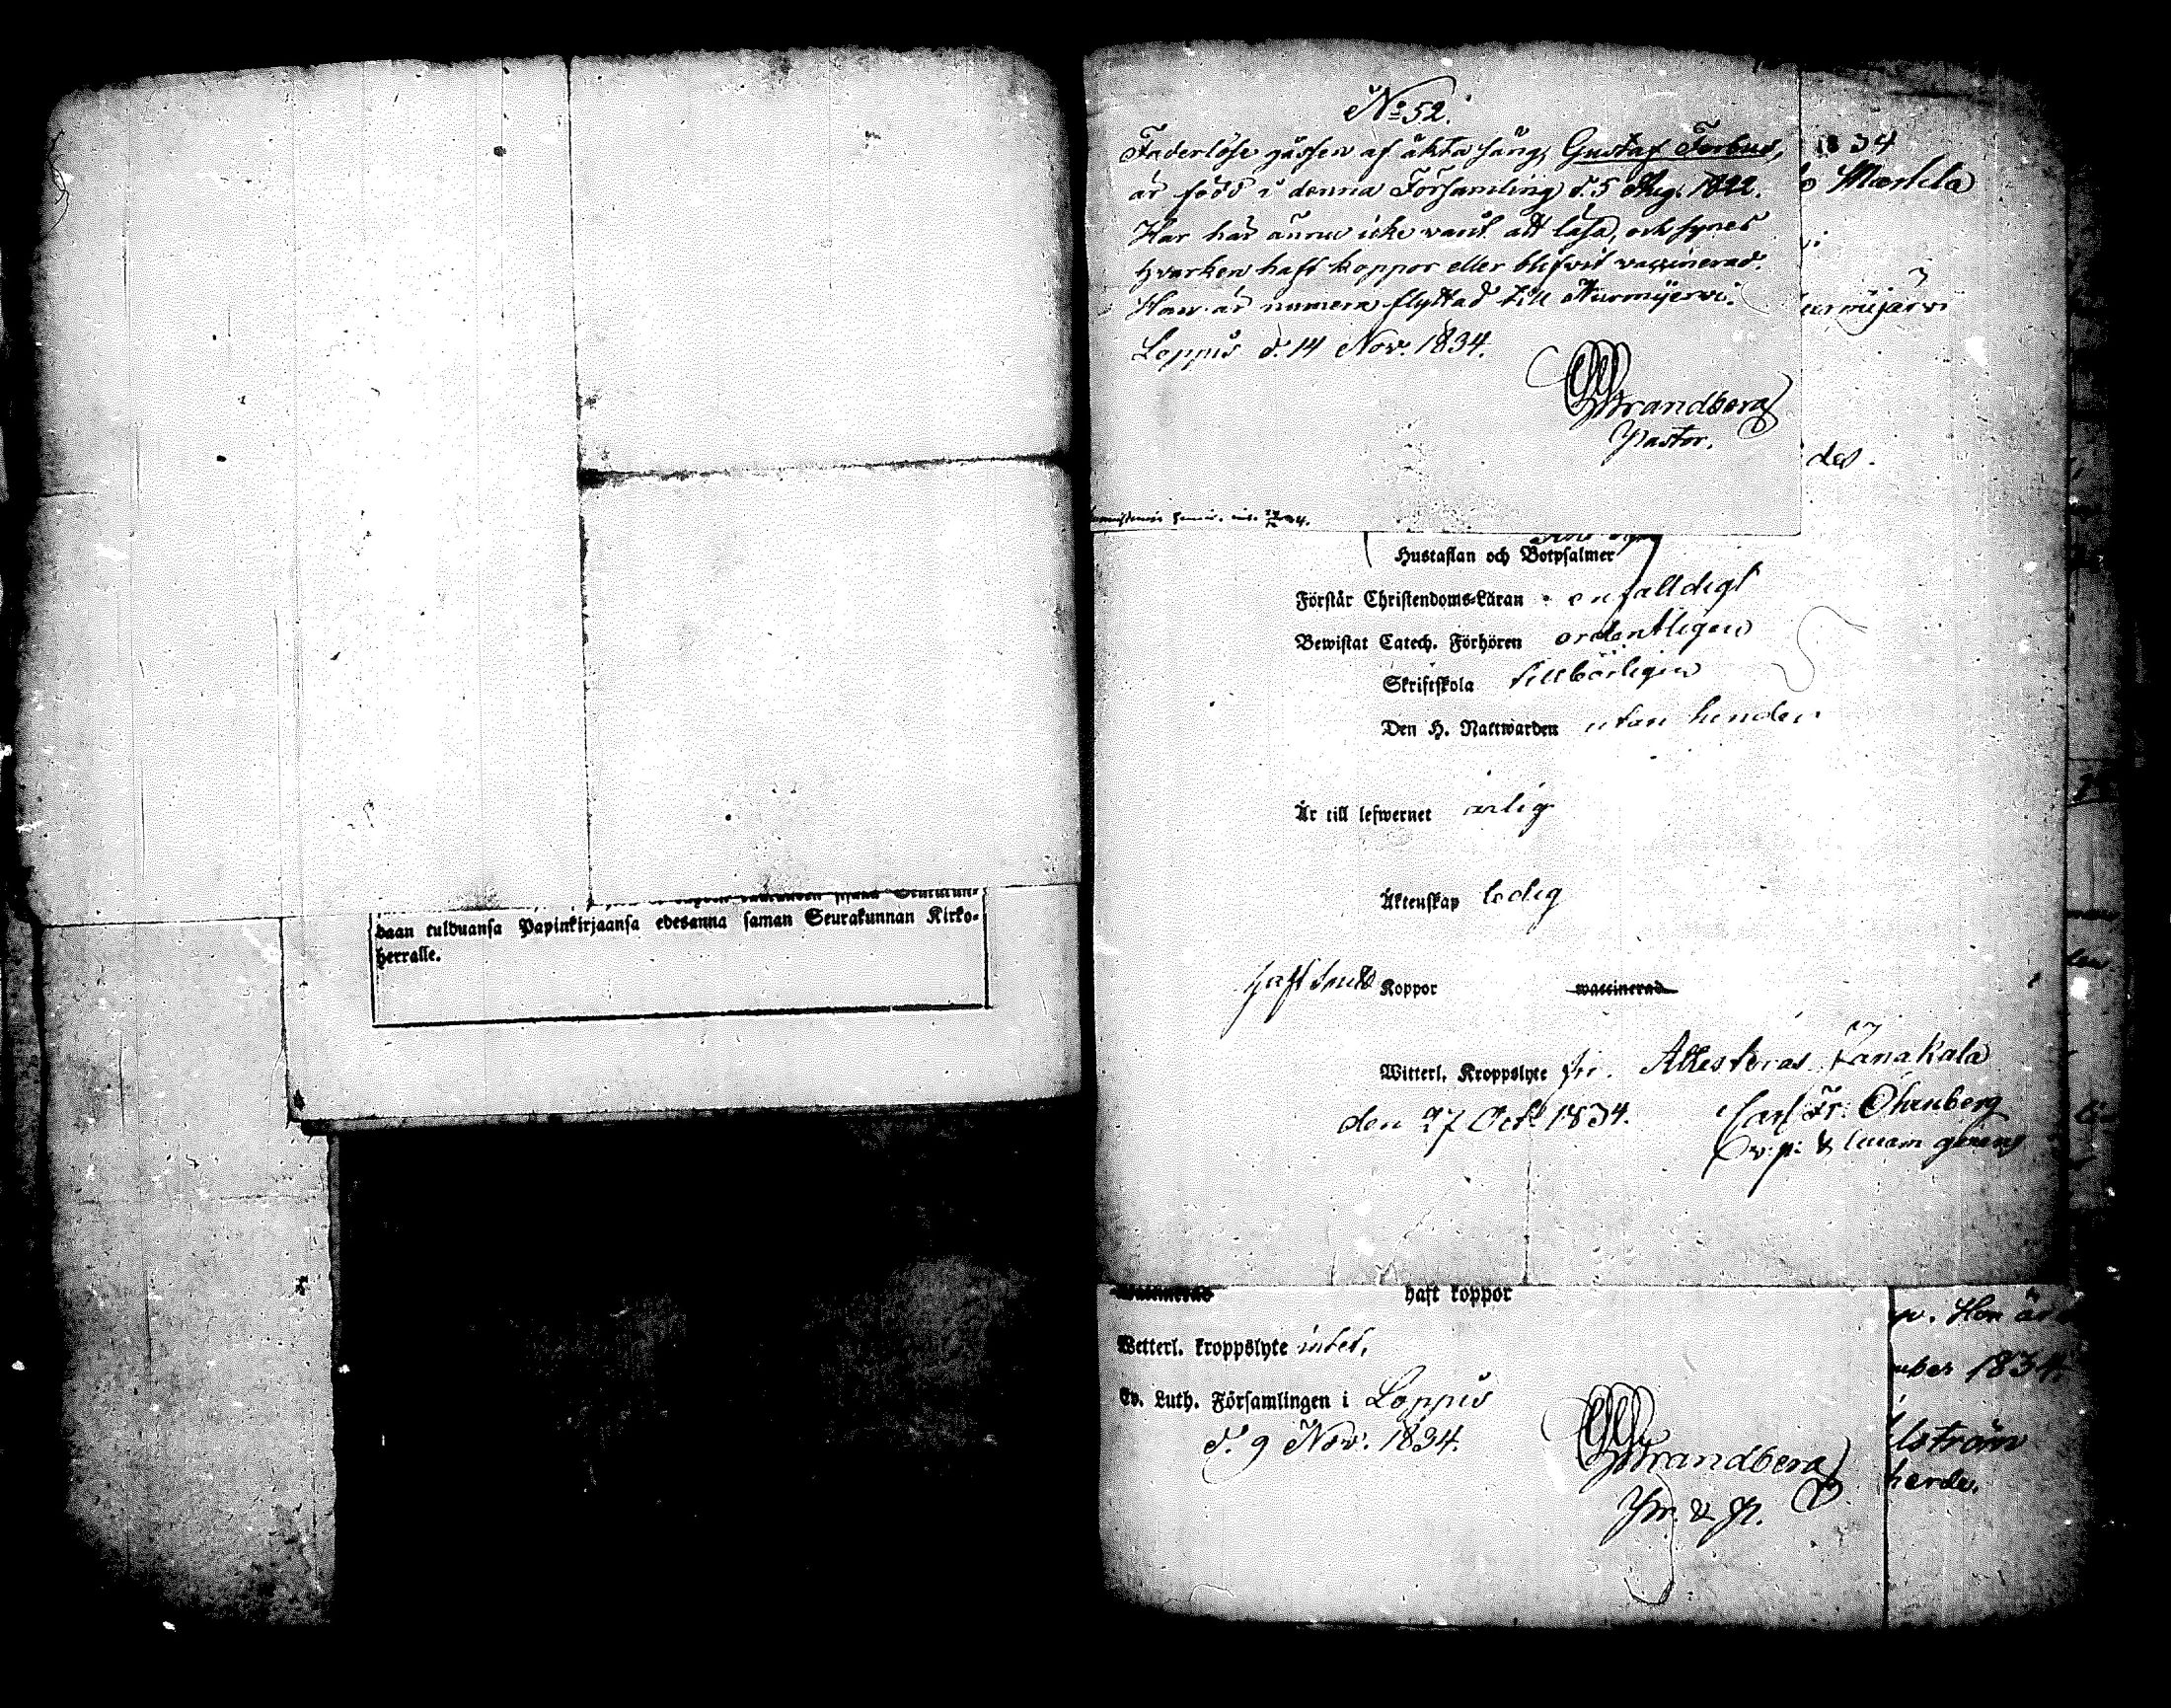 daan tulduansa Papinkirjaansa edesanna saman Seurakunnan Kirko-
herralle.
No 52.
Faderlöse gåssen af äkta säng, Gustaf Forbus,
är född i denna Församling d. 5 Aug. 1822.
Har här ännu icke vant att läsa, och synes
hvarken haft koppor eller blifvit vaccinerad.
Han är numera flyttad till Nurmijervi.
Loppis d. 14 Nov. 1834.
Strandberg
Pastor.
1834
Markla
urmijärvi
des.
Hustaflan och Botpsalmer
Förstår Christendoms-Läran enfalldigt
Bewistat Catech. Förhören ordentligen
Skriftskola tillbörligen
Den H. Nattwarden utan hinder
Är till lefwernet ärlig
Äktenskap ledig
haft Koppor wattinerad
Witterl. Kroppslyte fri. Attesteras Janakala
den 27 Octr 1834. Carl Fr. Öhrnberg
v. p:
haft koppor
Wetterl. kroppslyte intet,
Ev. Luth. Församlingen i Loppis
d. 9 Nov. 1834.
Strandberg
Pr. & P.
Hon är
mber 1834.
lström
herde.